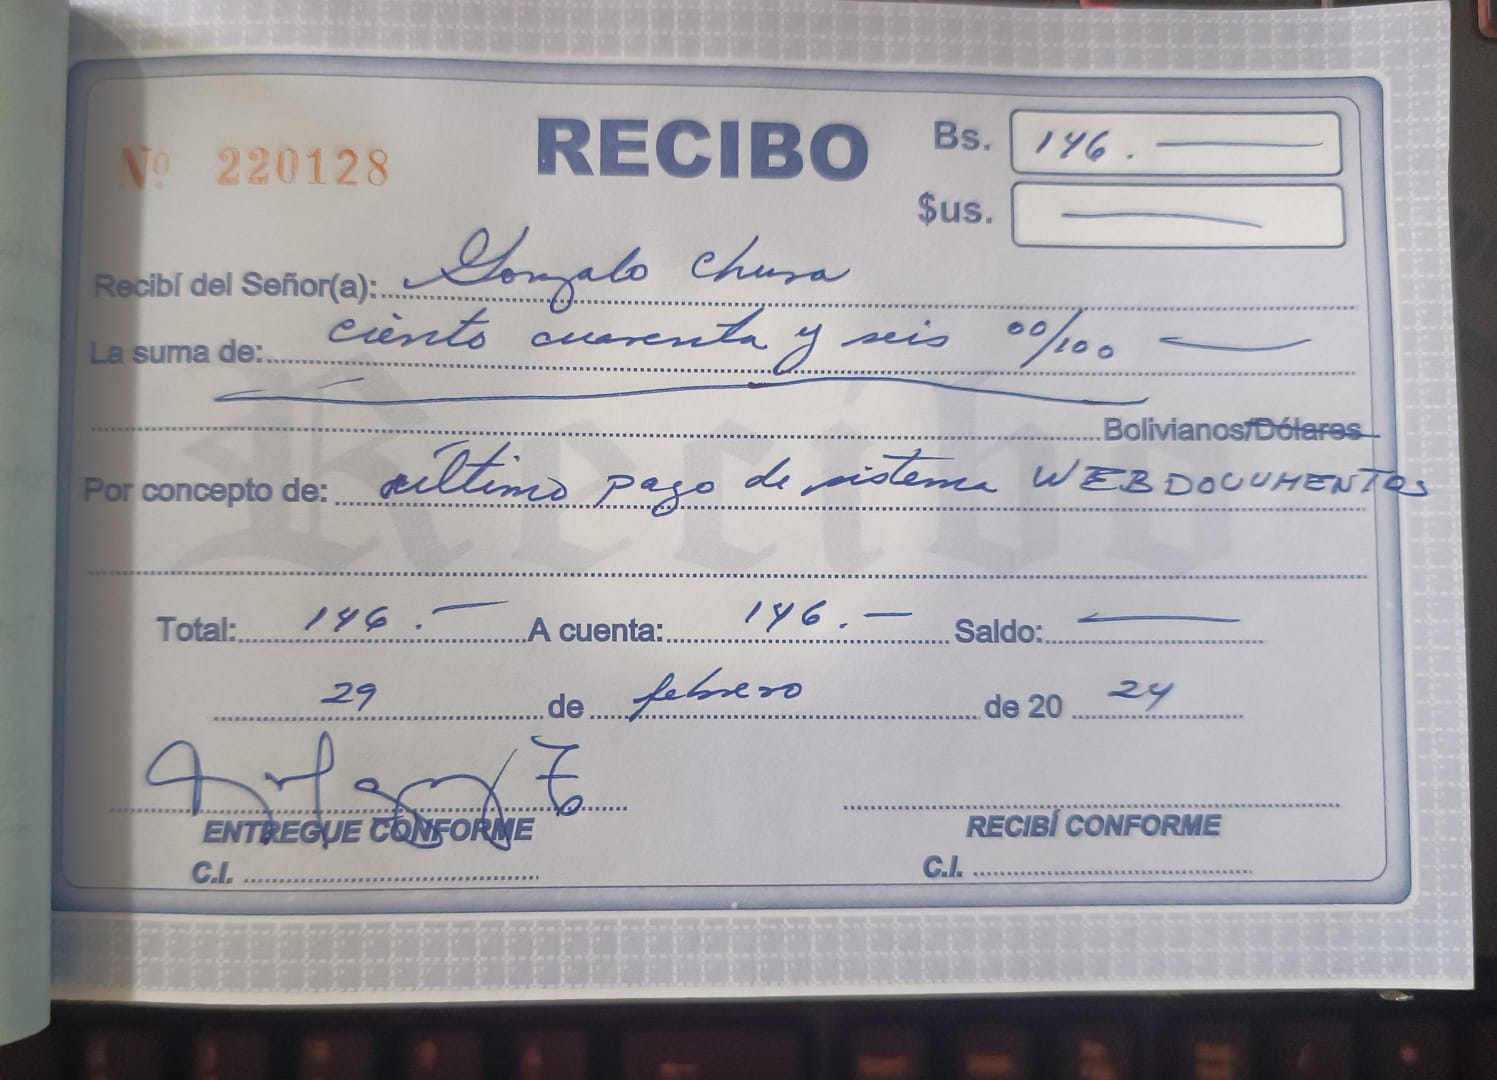 Nº 220128
RECIBO
Bs. 146.
$us.
Recibí del Señor(a): Gonzalo Chura
La suma de: ciento cuarenta y seis 00/100
Bolivianos/Dólares
Por concepto de: último pago de sistema WEBDOCUMENTOS
Total: 146. A cuenta: 146. Saldo:
29 de febrero de 20 24
ENTREGUE CONFORME
RECIBÍ CONFORME
C.I.
C.I.
Recibo